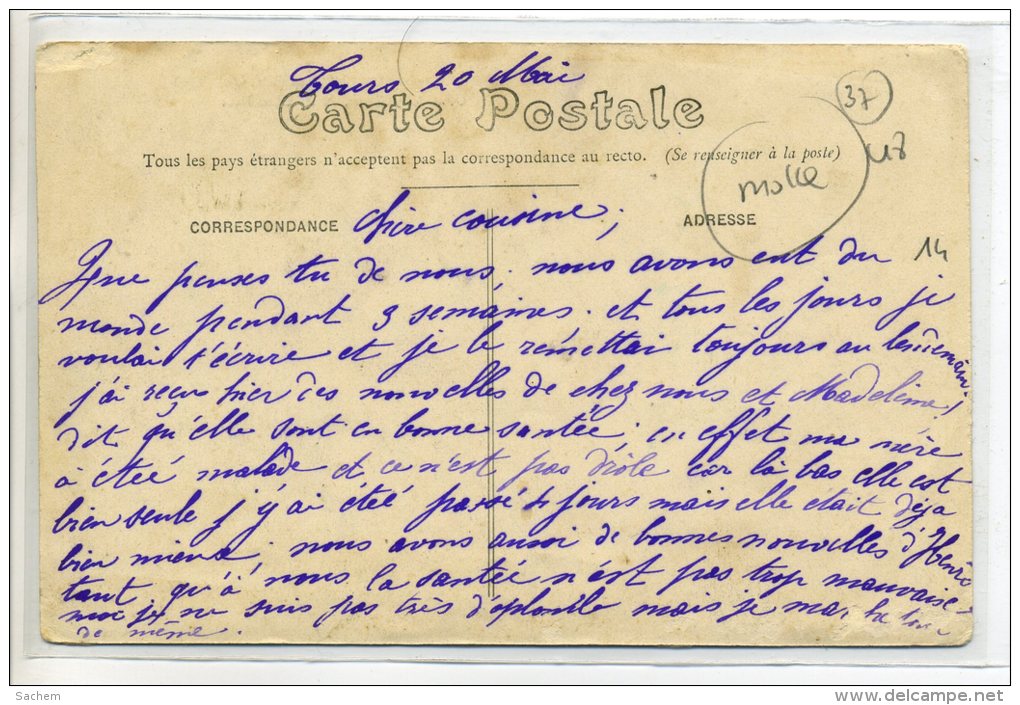 Tours 20 Mai
Carte Postale
37
48
Tous les pays étrangers n'acceptent pas la correspondance au recto. (Se renseigner à la poste)
CORRESPONDANCE
ADRESSE
Chère cousine ;
14
Que penses tu de nous. nous avons eut du
monde pendant 3 semaines. et tous les jours je
voulai t'écrire et je le remettai toujours au lendemain
j'ai reçu hier des nouvelles de chez nous et Madeleine
dit qu'elle sont en bonne santée ; en effet ma mère
à étéé malade et ce n'est pas drôle car là bas elle est
bien seule j'y ai étéé passé 4 jours mais elle était déja
bien mieux, nous avons aussi de bonnes nouvelles d'Henri
tant qu'à nous la santée n'est pas trop mauvaise
moi je ne suis pas très
mais je
de même.
Sachem
http://www.delcampe.net